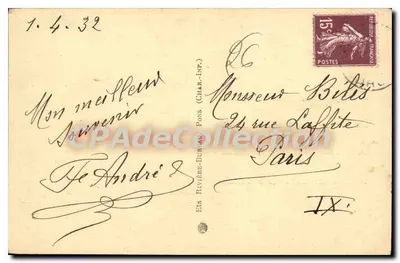 1.4.32
Mon meilleur
souvenir
Fe André
Ets RIVIÈRE-BUREAU, Pons (CHAR.-INF.)
15c
POSTES
Monsieur Bilis
24 rue Laffite
Paris
IX.
CPACollection